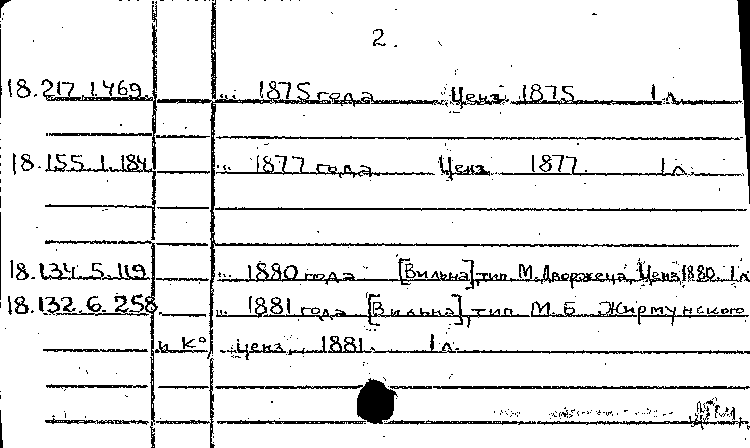 2.
18.217.1.469. ... 1875 года Ценз 1875 1 л.
18.155.1.184 ... 1877 года Ценз 1877. 1 л.
18.134.5.119 ... 1880 года [Вильна], тип. М. Дворжеца, Ценз 1880. 1 л
18.132.6.258. ... 1881 года [Вильна], тип. М. Б. Жирмунского
и К°, ценз., 1881. 1 л.